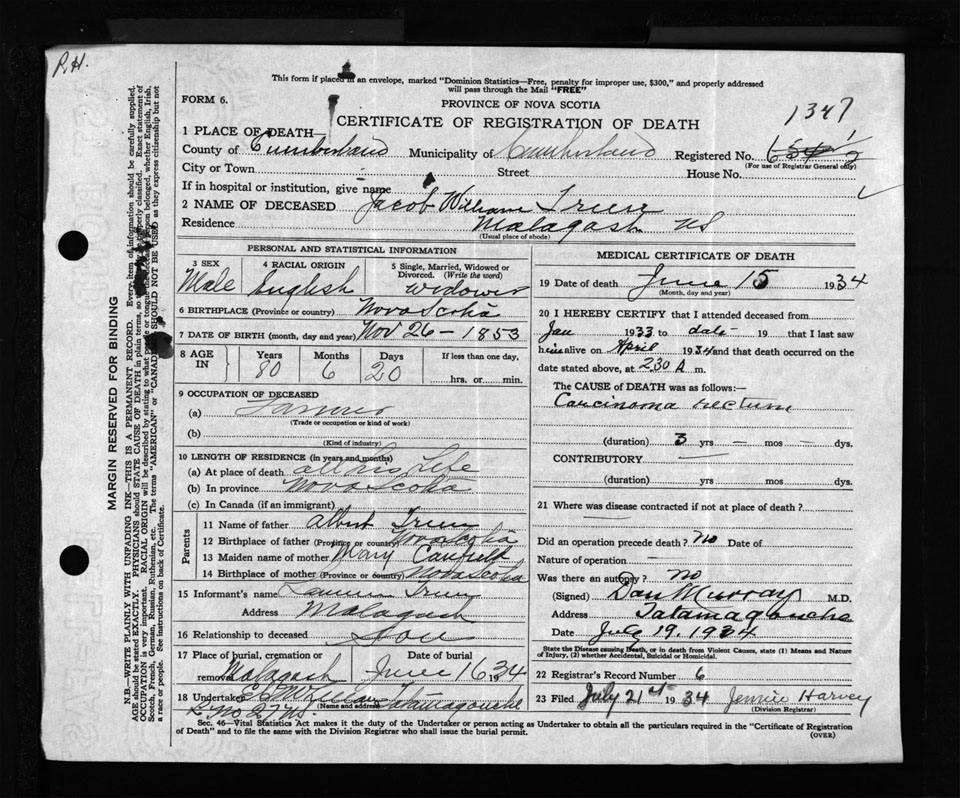 P.H.
This form if placed in an envelope, marked "Dominion Statistics—Free, penalty for improper use, $300," and properly addressed
will pass through the Mail "FREE"
FORM 6.
PROVINCE OF NOVA SCOTIA
1347
CERTIFICATE OF REGISTRATION OF DEATH
1 PLACE OF DEATH—
County of Cumberland Municipality of Cumberland Registered No.
(For use of Registrar General only)
City or Town Street House No.
If in hospital or institution, give name
2 NAME OF DECEASED Jacob William
Residence Malagash NS
(Usual place of abode)
PERSONAL AND STATISTICAL INFORMATION
3 SEX Male
4 RACIAL ORIGIN English
5 Single, Married, Widowed or Divorced. (Write the word) widower
6 BIRTHPLACE (Province or country) Nova Scotia
7 DATE OF BIRTH (month, day and year) Nov 26 - 1853
8 AGE IN Years 80 Months 6 Days 20 If less than one day, hrs. or min.
9 OCCUPATION OF DECEASED
(a) Farmer
(Trade or occupation or kind of work)
(b)
(Kind of industry)
10 LENGTH OF RESIDENCE (in years and months)
(a) At place of death all his Life
(b) In province Nova Scotia
(c) In Canada (if an immigrant)
Parents
11 Name of father Albert
12 Birthplace of father (Province or country) Nova Scotia
13 Maiden name of mother Mary
14 Birthplace of mother (Province or country) Nova Scotia
15 Informant's name
Address Malagash
16 Relationship to deceased Son
17 Place of burial, cremation or removal Malagash Date of burial June 16 1934
18 Undertaker Tatamagouche
(Name and address)
No 2 NS.
MEDICAL CERTIFICATE OF DEATH
19 Date of death June 15 1934
(Month, day and year)
20 I HEREBY CERTIFY that I attended deceased from
Jan 1933 to date 19 that I last saw
him alive on April 1934 and that death occurred on
date stated above, at 230 A m.
The CAUSE OF DEATH was as follows:
Carcinoma rectum
(duration) 3 yrs — mos — dys.
CONTRIBUTORY —
(duration) yrs mos dys.
21 Where was disease contracted if not at place of death?
Did an operation precede death? No Date of
Nature of operation —
Was there an autopsy? no
(Signed) Dan Murray M.D.
Address Tatamagouche
Date July 19. 1934
State the Disease causing Death, or in death from Violent Causes, state (1) Means and Nature of Injury, (2) whether Accidental, Suicidal or Homicidal.
22 Registrar's Record Number 6
23 Filed July 21st 1934 Jennie Harvey
(Division Registrar)
Sec. 46—Vital Statistics Act makes it the duty of the Undertaker or person acting as Undertaker to obtain all the particulars required in the "Certificate of Registration
of Death" and to file the same with the Division Registrar who shall issue the burial permit.
(OVER)
MARGIN RESERVED FOR BINDING
N.B.—WRITE PLAINLY WITH UNFADING INK—THIS IS A PERMANENT RECORD. Every item of information should be carefully supplied.
AGE should be stated EXACTLY. PHYSICIANS should STATE CAUSE OF DEATH in plain terms, so properly classified. Exact statement of
OCCUPATION is very important. RACIAL ORIGIN will be described by stating to what people or tongue belonged, whether English, Irish,
Scotch, French, German, Russian, Ruthenian, etc. The terms "AMERICAN" or "CANADIAN" SHOULD NOT BE USED as they express citizenship but not
a race or people. See instructions on back of Certificate.